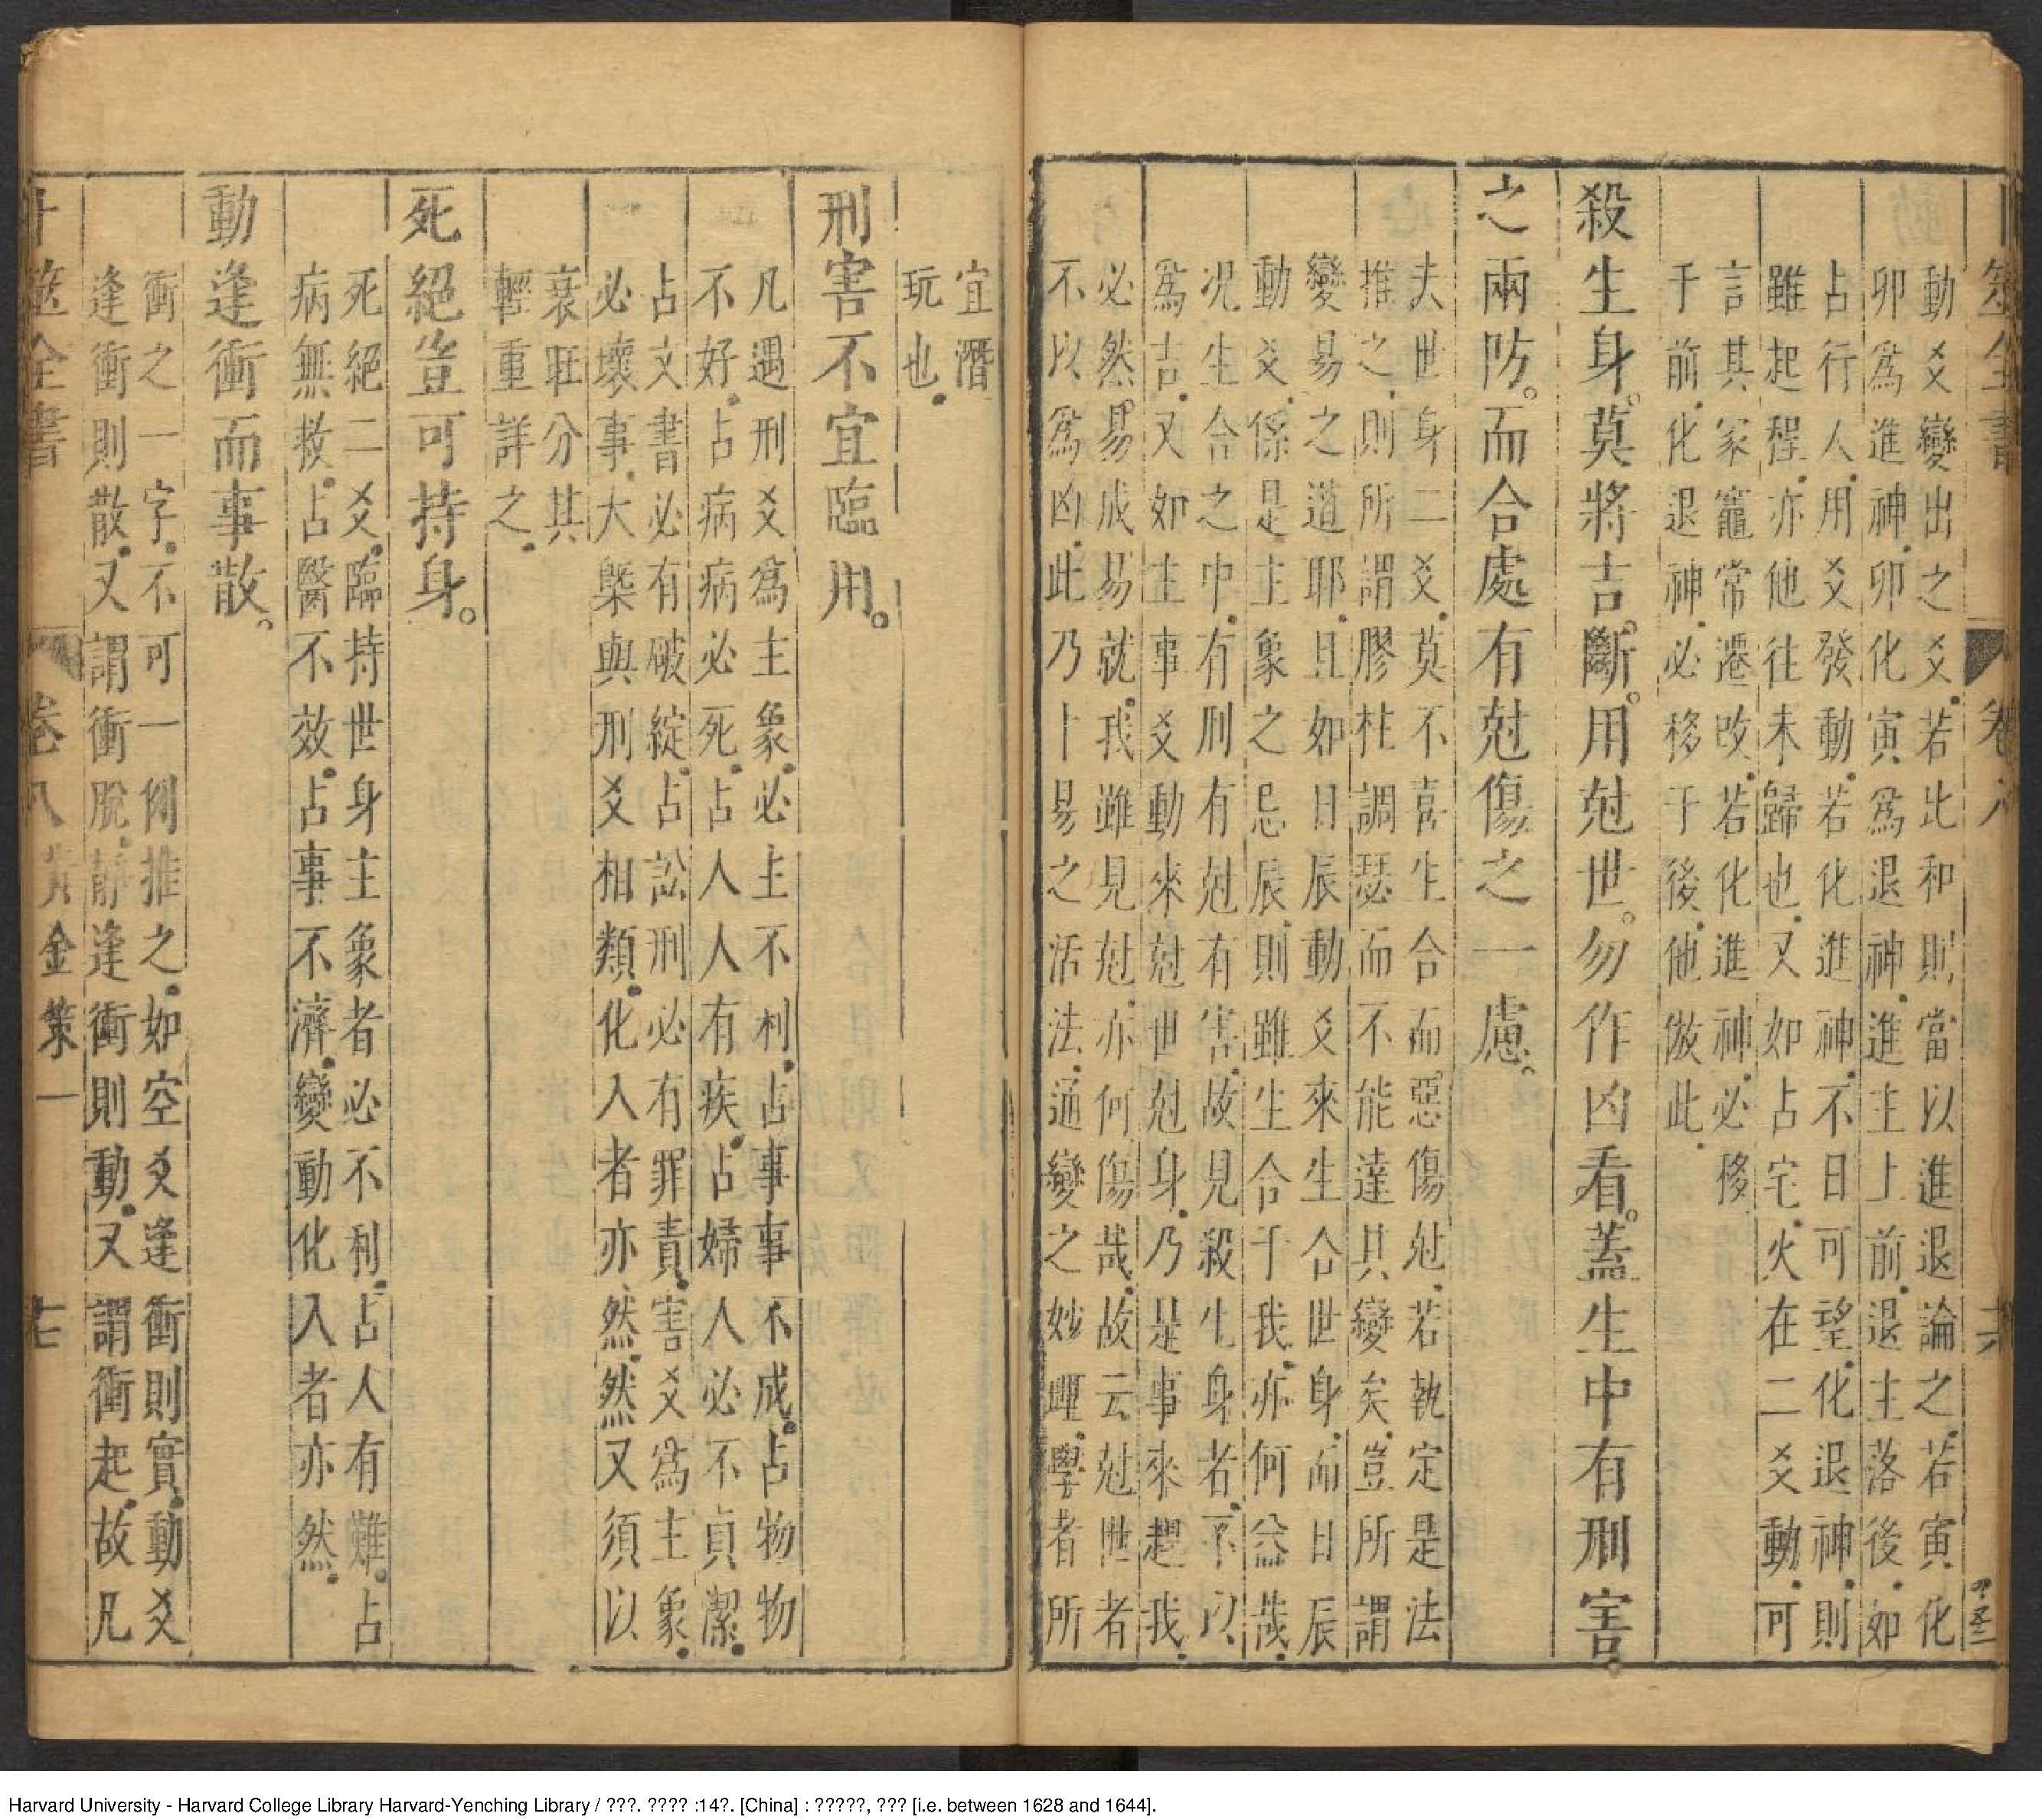 卜筮全書
卷八
十六
動爻變出之爻若比和則當以進退論之若寅化
卯爲進神卯化寅爲退神進主上前退主落後如
占行人用爻發動若化進神不日可望化退神則
雖起程亦他往未歸也又如占宅火在二爻動可
言其家竈常遷改若化進神必移
于前化退神必移于後他倣此
殺生身莫將吉斷用尅世勿作凶看蓋生中有刑害
之兩防而合處有尅傷之一慮
夫世身二爻莫不喜生合而惡傷尅若執定是法
推之則所謂膠柱調瑟而不能達其變矣豈所謂
變易之道耶且如日辰動爻來生合世身而日辰
動爻係是主象之忌辰則雖生合于我亦何益哉
况生合之中有刑有尅有害故見殺生身者不以
爲吉又如主事爻動來尅世尅身乃是事來趕我
必然易成易就我雖見尅亦何傷哉故云尅世者
不以爲凶此乃卜易之活法通變之妙理學者所
宜潛
玩也
刑害不宜臨用
凡遇刑爻爲主象必主不利占事事不成占物物
不好占病病必死占人人有疾占婦人必不貞潔
占文書必有破綻占訟刑必有罪責害爻爲主象
必壞事大槩與刑爻相類化入者亦然然又須以
衰旺分其
輕重詳之
死絕豈可持身
死絕二爻臨持世身主象者必不利占人有難占
病無救占醫不效占事不濟變動化入者亦然
動逢衝而事散
衝之一字不可一例推之如空爻逢衝則實動爻
逢衝則散又謂衝脫靜逢衝則動又謂衝起故凡
卜筮全書
卷八
黃金策一
十七
Harvard University - Harvard College Library Harvard-Yenching Library / ???. ???? :14?. [China] : ?????, ??? [i.e. between 1628 and 1644].